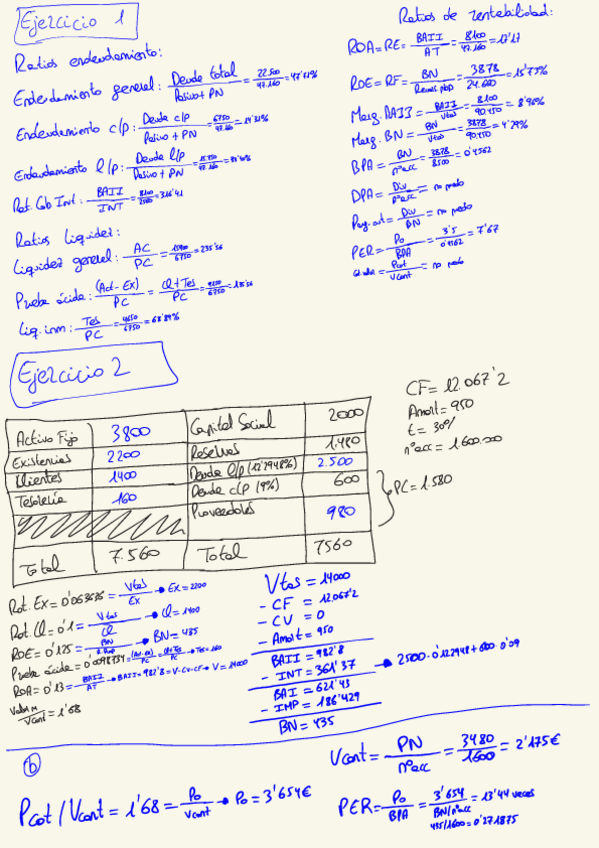 Ejercicio 1
Ratios endeudamiento:
Endeudamiento general: Deuda total / Pasivo + PN = 22.500 / 47.160 = 47'71%
Endeudamiento c/p: Deuda c/p / Pasivo + PN = 6750 / 47.160 = 14'31%
Endeudamiento l/p: Deuda l/p / Pasivo + PN
Rat. Cob Int: BAII / INT
Ratios Liquidez:
Liquidez general: AC / PC = 15900 / 6750 = 235'56
Prueba ácida: (Act - Ex) / PC = Cl + Tes / PC
Liq. inm: Tes / PC = 4650 / 6750 = 68'89%
Ratios de rentabilidad:
ROA = RE = BAII / AT = 8100 / 47.160 = 17'17
ROE = RF = BN / = 3878 / 24.660 = 15'73%
Marg. BAII = BAII / Vtas = 8100 / 90.450 = 8'96%
Marg. BN = BN / Vtas = 3878 / 90.450 = 4'29%
BPA = BN / nºacc = 3878 / 8500 = 0'4562
DPA = Div / nºacc = no puedo
Pay-out = Div / BN = no puedo
PER = Po / BPA = 3'5 / 0'4562 = 7'67
Pcot / Vcont = no puedo
Ejercicio 2
CF = 12.067'2
Amort = 950
t = 30%
nºacc = 1.600.000
Activo Fijo 3800 Capital Social 2000
Existencias 2200 Reservas 1.480
Clientes 1400 Deuda l/p (12'2948%) 2.500
Tesorería 160 Deuda c/p (9%) 600
Proveedores 980
PC = 1.580
Total 7.560 Total 7560
Rot. Ex = 0'063636 = Vtas / Ex → Ex = 2200
Rot. Cl = 0'1 = Vtas / Cl → Cl = 1400
ROE = 0'125 = BN / → BN = 435
Prueba ácida = 0'0098734 = (Act - Ex) / PC = Cl + Tes / PC → Tes = 160
ROA = 0'13 = BAII / AT → BAII = 982'8 = V - CV - CF → V = 14000
Vcont = 1'68
Vtas = 14000
- CF = 12067'2
- CV = 0
- Amort = 950
BAII = 982'8
- INT = 361'37 → 2500 · 0'122948 + 600 · 0'09
BAI = 621'43
- IMP = 186'429
BN = 435
b
Vcont = PN / nºacc = 3480 / 1600 = 2'175€
Pcot / Vcont = 1'68 = Po / Vcont → Po = 3'654€
PER = Po / BPA = 3'654 / BN/nºacc = 13'44 veces
435/1600 = 0'271875